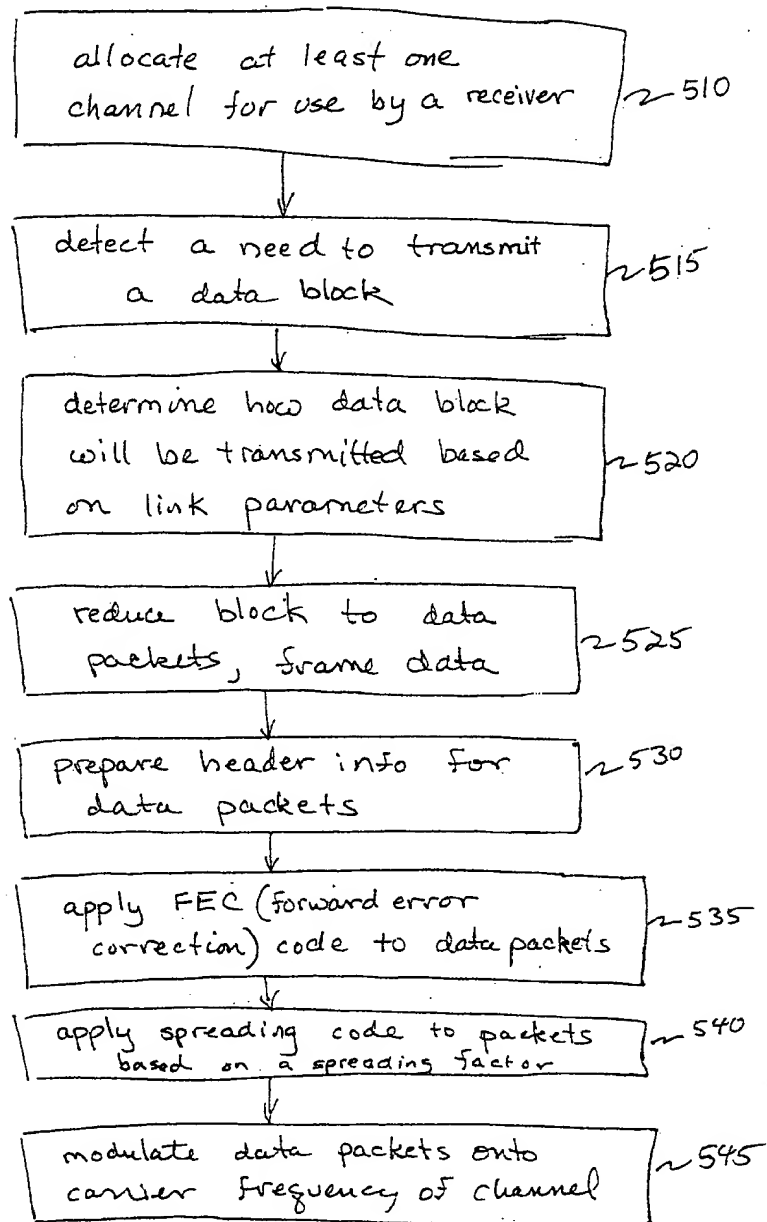 allocate at least one
channel for use by a receiver
510
detect a need to transmit
a data block
515
determine how data block
will be transmitted based
on link parameters
520
reduce block to data
packets, frame data
525
prepare header info for
data packets
530
apply FEC (forward error
correction) code to data packets
535
apply spreading code to packets
based on a spreading factor
540
modulate data packets onto
carrier frequency of channel
545